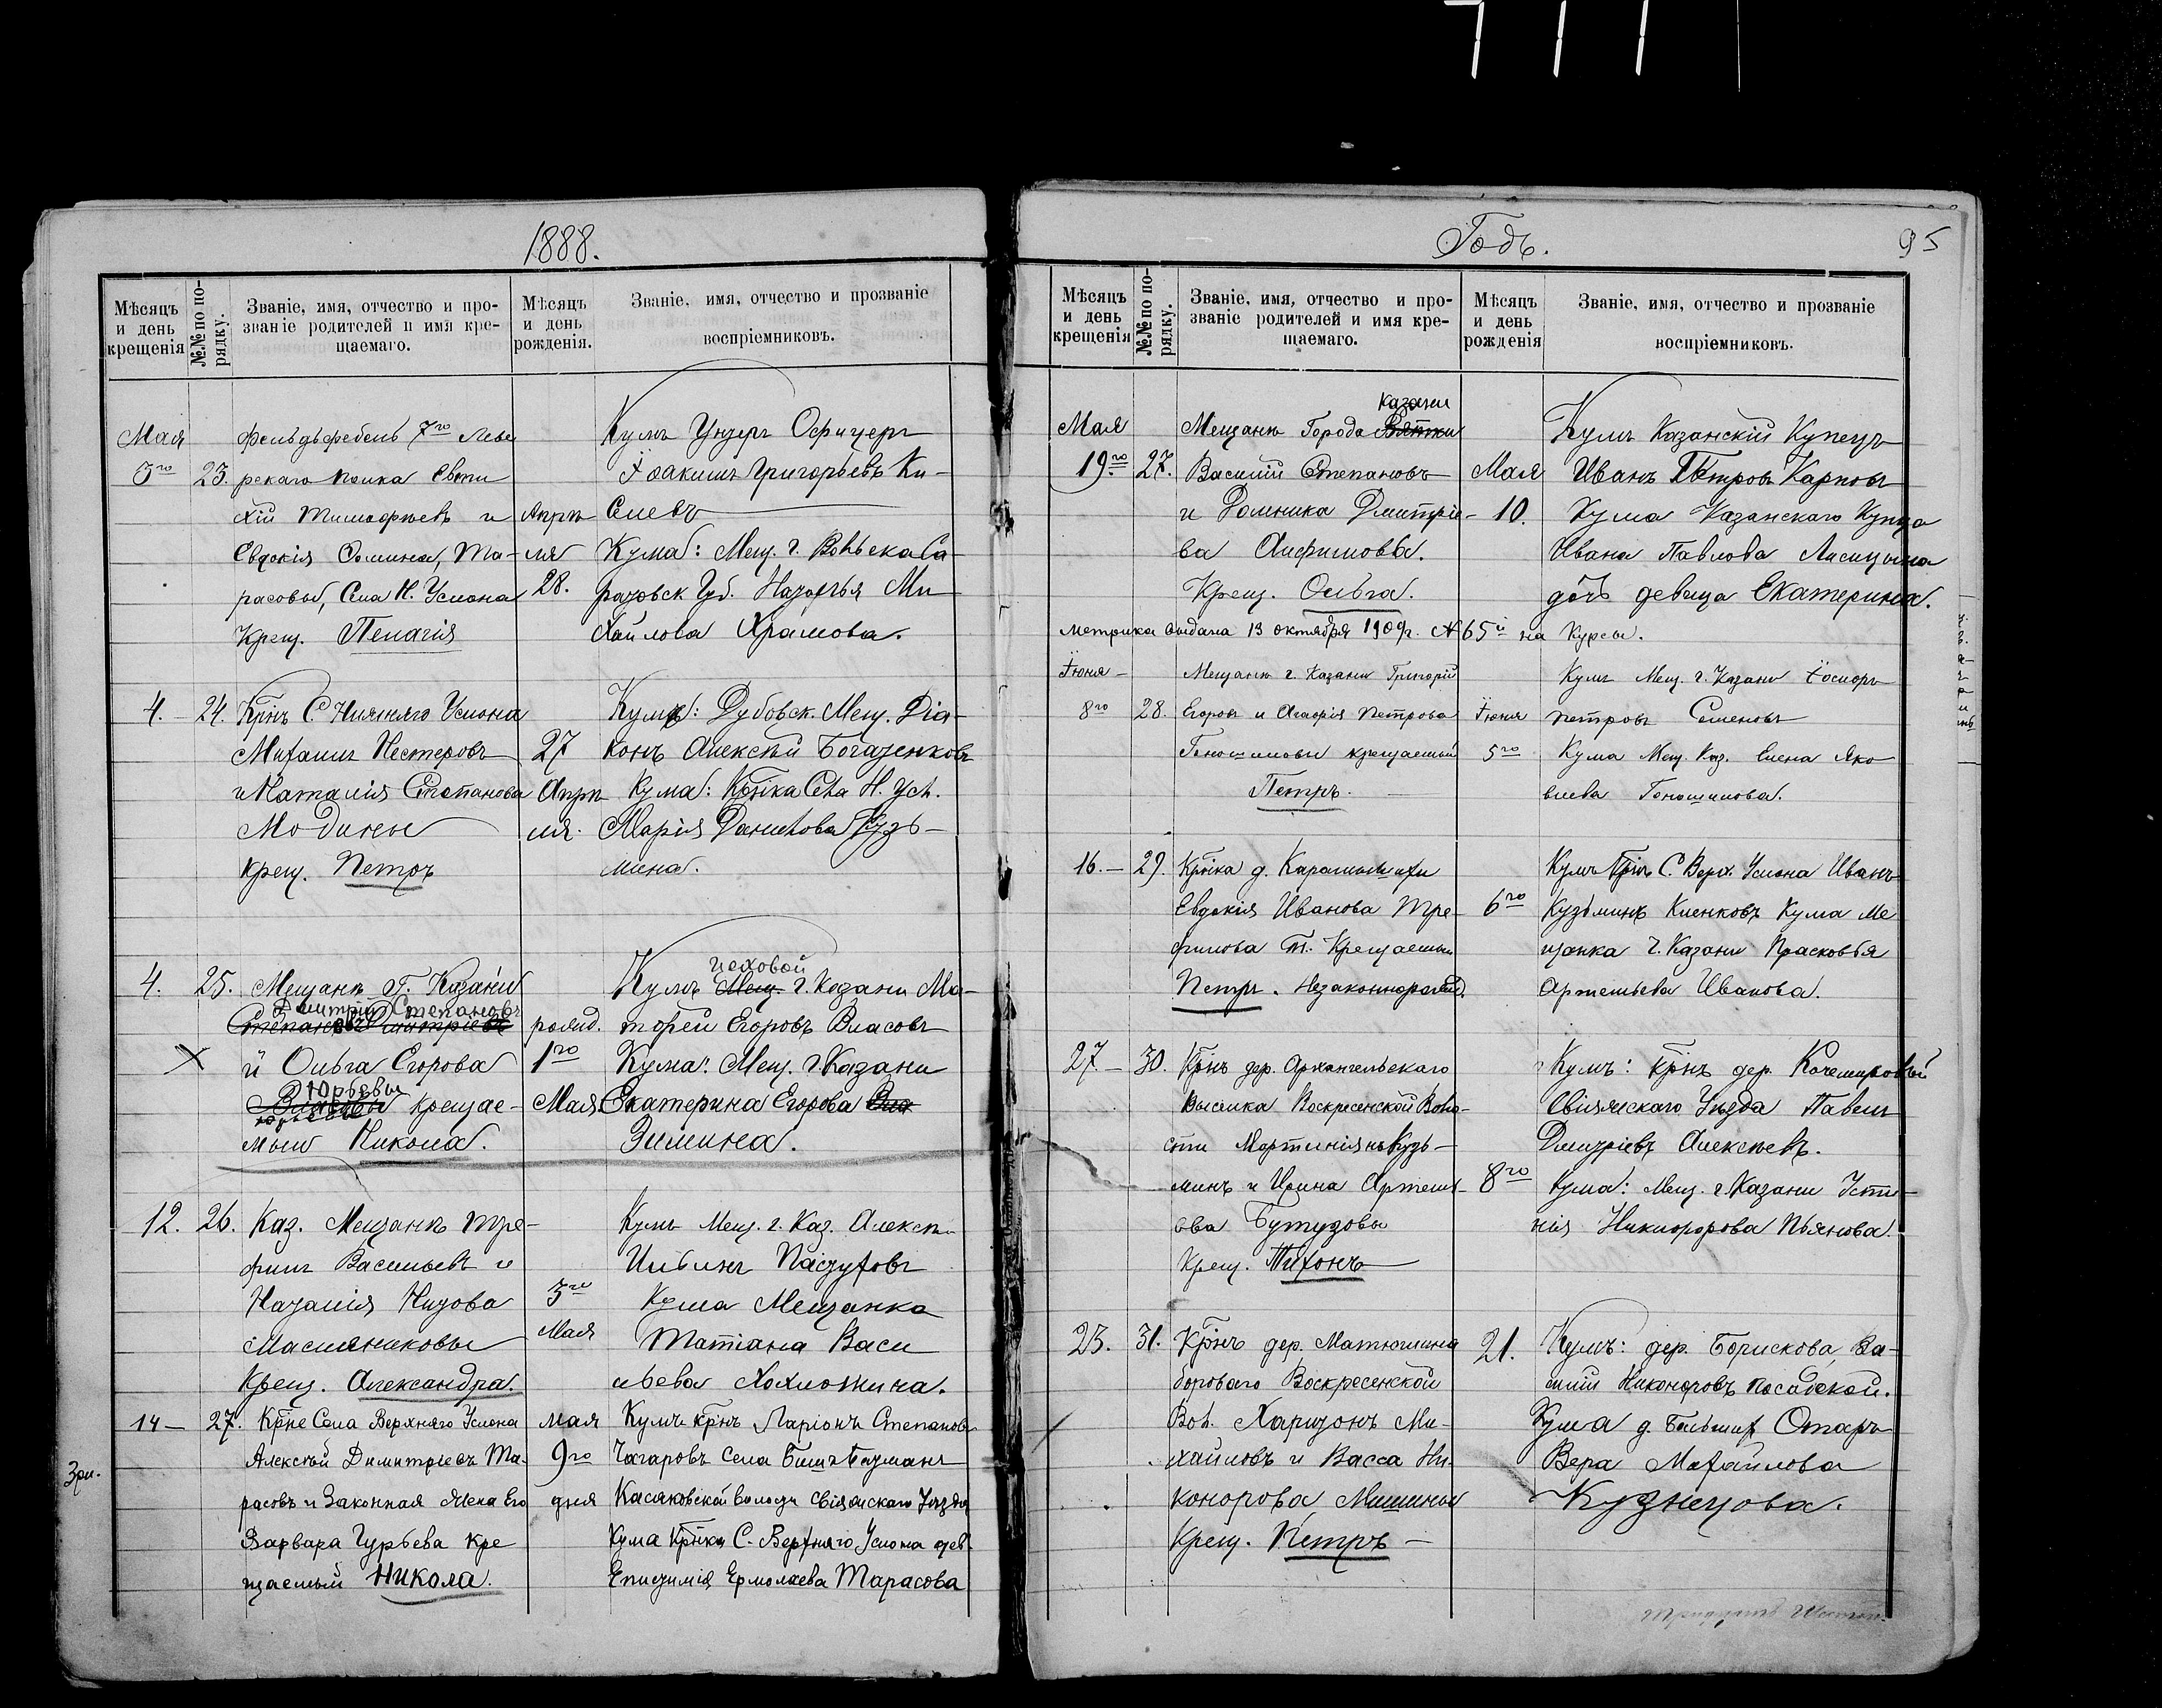 1888.
Мѣсяцъ и день крещенія
№№ по порядку.
Званіе, имя, отчество и прозваніе родителей и имя крещаемаго.
Мѣсяцъ и день рожденія.
Званіе, имя, отчество и прозваніе воспріемниковъ.
Мая
3го
23.
Фельдьфебель 7го
рскаго полка Евти
хій Тимофѣевъ и
Евдокія Фомина, Та-
расовы, Села Н. Услона
Крещ. Пелагія
Апрѣ
ля
28.
Кумъ Ундеръ Офицеръ
Іоакимъ Григорьевъ Ки-
селевъ
Кума: Мещ. г. Вольска Са-
ратовск Губ. Ми
хайлова Храмова.
4.
24.
Крнъ С. Нижняго Услона
Михаилъ Нестеровъ
и Наталія Степанова
Модины
Крещ. Петръ
27
Апрѣ
ля.
Кумъ: Дубовск. Мещ. Діа-
конъ Алексѣй Богатенковъ
Кума: Крнка Села Н. Усл.
Марія Данилова Кузь-
мина.
4.
25.
Мещанъ Г. Казани
Дмитрій Степановъ
Степановъ Дмитріевъ
и Ольга Егорова
Юрьевы
крещае-
мый Никола.
рожд.
1го
Мая
цеховой
Кумъ Мещ. г. Казани Ма-
твей Егоровъ Власовъ
Кума: Мещ. г. Казани
Екатерина Егорова Вла
Зимина.
12.
26.
Каз. Мещанъ Тре-
филъ Васильевъ и
Наталія Низова
Масленниковы
Крещ. Александра.
3го
Мая
Кумъ Мещ. г. Каз. Алексѣй
Ильинъ Пастуховъ
Кума Мещанка
Татіана Васи
льева Хохлошина.
14
27.
Зри.
Крне Села Верхняго Услона
Алексѣй Димитріевъ Та-
расовъ и Законная Жена Его
Варвара Гурьева кре
щаемый Никола.
мая
9го
дня
Кумъ крнъ Ларіонъ Степановъ
Чагаровъ Села
Касяковской волости Свіяжскаго Уѣзда
Кума Крнка С. Верхняго Услона дев.
Епистимія Ермолаева Тарасова
Годъ.
95
Мѣсяцъ и день крещенія
№№ по порядку.
Званіе, имя, отчество и прозваніе родителей и имя крещаемаго.
Мѣсяцъ и день рожденія
Званіе, имя, отчество и прозваніе воспріемниковъ.
Мая
19го
27.
Казани
Мещанъ Города Вятки
Василій Степановъ
и Домника Дмитріе-
ва Анфимовы.
Крещ. Ольга.
Мая
10.
Кумъ Казанскій Купецъ
Иванъ Петровъ Карповъ
Кума Казанскаго Купца
Ивана Павлова Лисицына
дочь девица Екатерина.
Метрика выдана 13 октября 1909г. № 65й на Курсы.
Іюня
8го
28.
Мещанъ г. Казани Григорій
Егоровъ и Агафія Петрова
Гоношиловы крещаемый
Петръ.
Іюня
5го
Кумъ Мещ. г. Казани
Петровъ Семеновъ
Кума Мещ. Каз. Елена Яко
влева Гоношилова.
16.
29.
Крнка д.
Евдокія Иванова Тре-
филова Крещаемый
Петръ. Незаконнорожд.
6го
Кумъ Крнъ С. Верх. Услона Иванъ
Кузьминъ Кленковъ Кума Ме
щанка г. Казани Прасковья
Артемьева Иванова.
27
30.
Крнъ дер. Архангельскаго
Выселка Воскресенской Воло-
сти Мартиніянъ Кузь-
минъ и Ирина Артемь-
ева Бутузовы
Крещ. Тихонъ
8го
Кумъ: Крнъ дер.
Свіяжскаго Уѣзда Павелъ
Дмитріевъ Алексѣевъ.
Кума: Мещ. г. Казани Усти-
нія Никифорова Пьянова.
23.
31.
Крнъ дер. Матюшина
Борового Воскресенской
Вол. Харитонъ Ми-
хайловъ и Васса Ни-
конорова Мишины
Крещ. Петръ
21.
Кумъ: дер. Борискова, Ва-
силій Никоноровъ Посадской.
Кума д. Большихъ Отаръ
Вера Михайлова
Кузнецова.